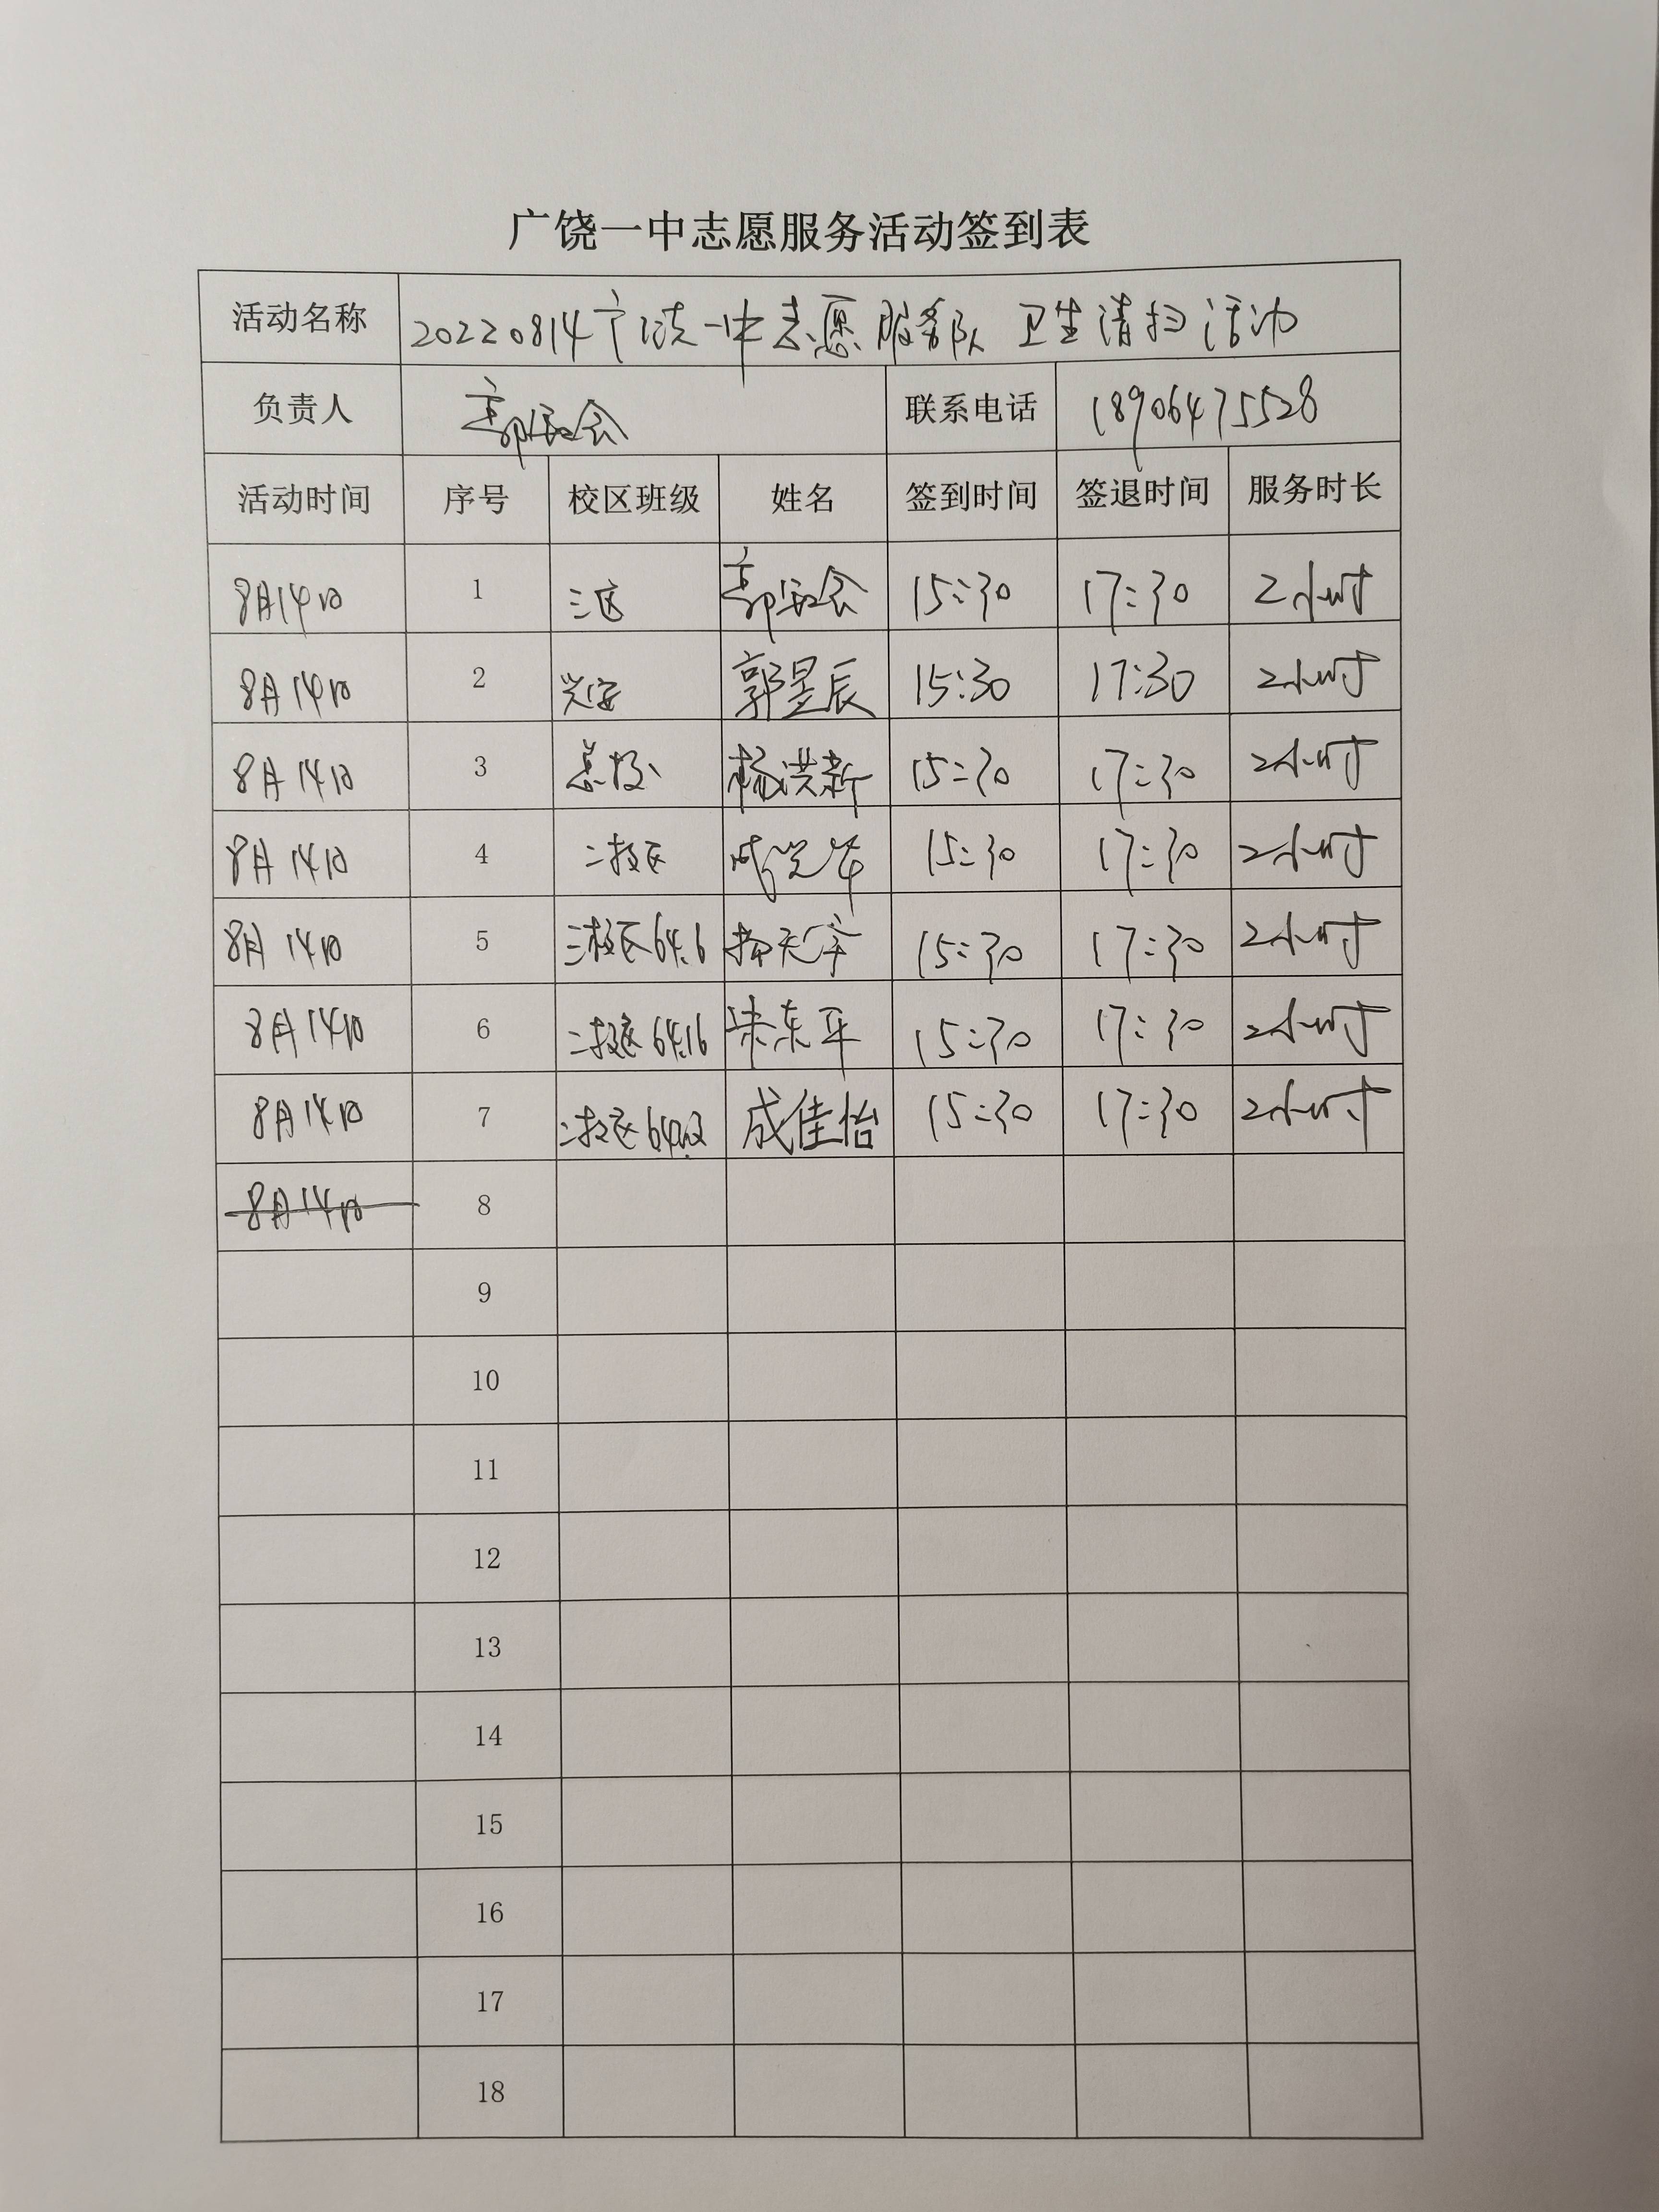 广饶一中志愿服务活动签到表
活动名称 20220814广饶一中志愿服务队 卫生清扫活动
负责人 联系电话 18906475528
活动时间 序号 校区班级 姓名 签到时间 签退时间 服务时长
8月14日 1 三区 15:30 17:30 2小时
8月14日 2 兴安 郭昱辰 15:30 17:30 2小时
8月14日 3 总校 杨洪新 15:30 17:30 2小时
8月14日 4 二校区 15:30 17:30 2小时
8月14日 5 三校区 15:30 17:30 2小时
8月14日 6 二校区 15:30 17:30 2小时
8月14日 7 二校区 成佳怡 15:30 17:30 2小时
8月14日 8
9
10
11
12
13
14
15
16
17
18